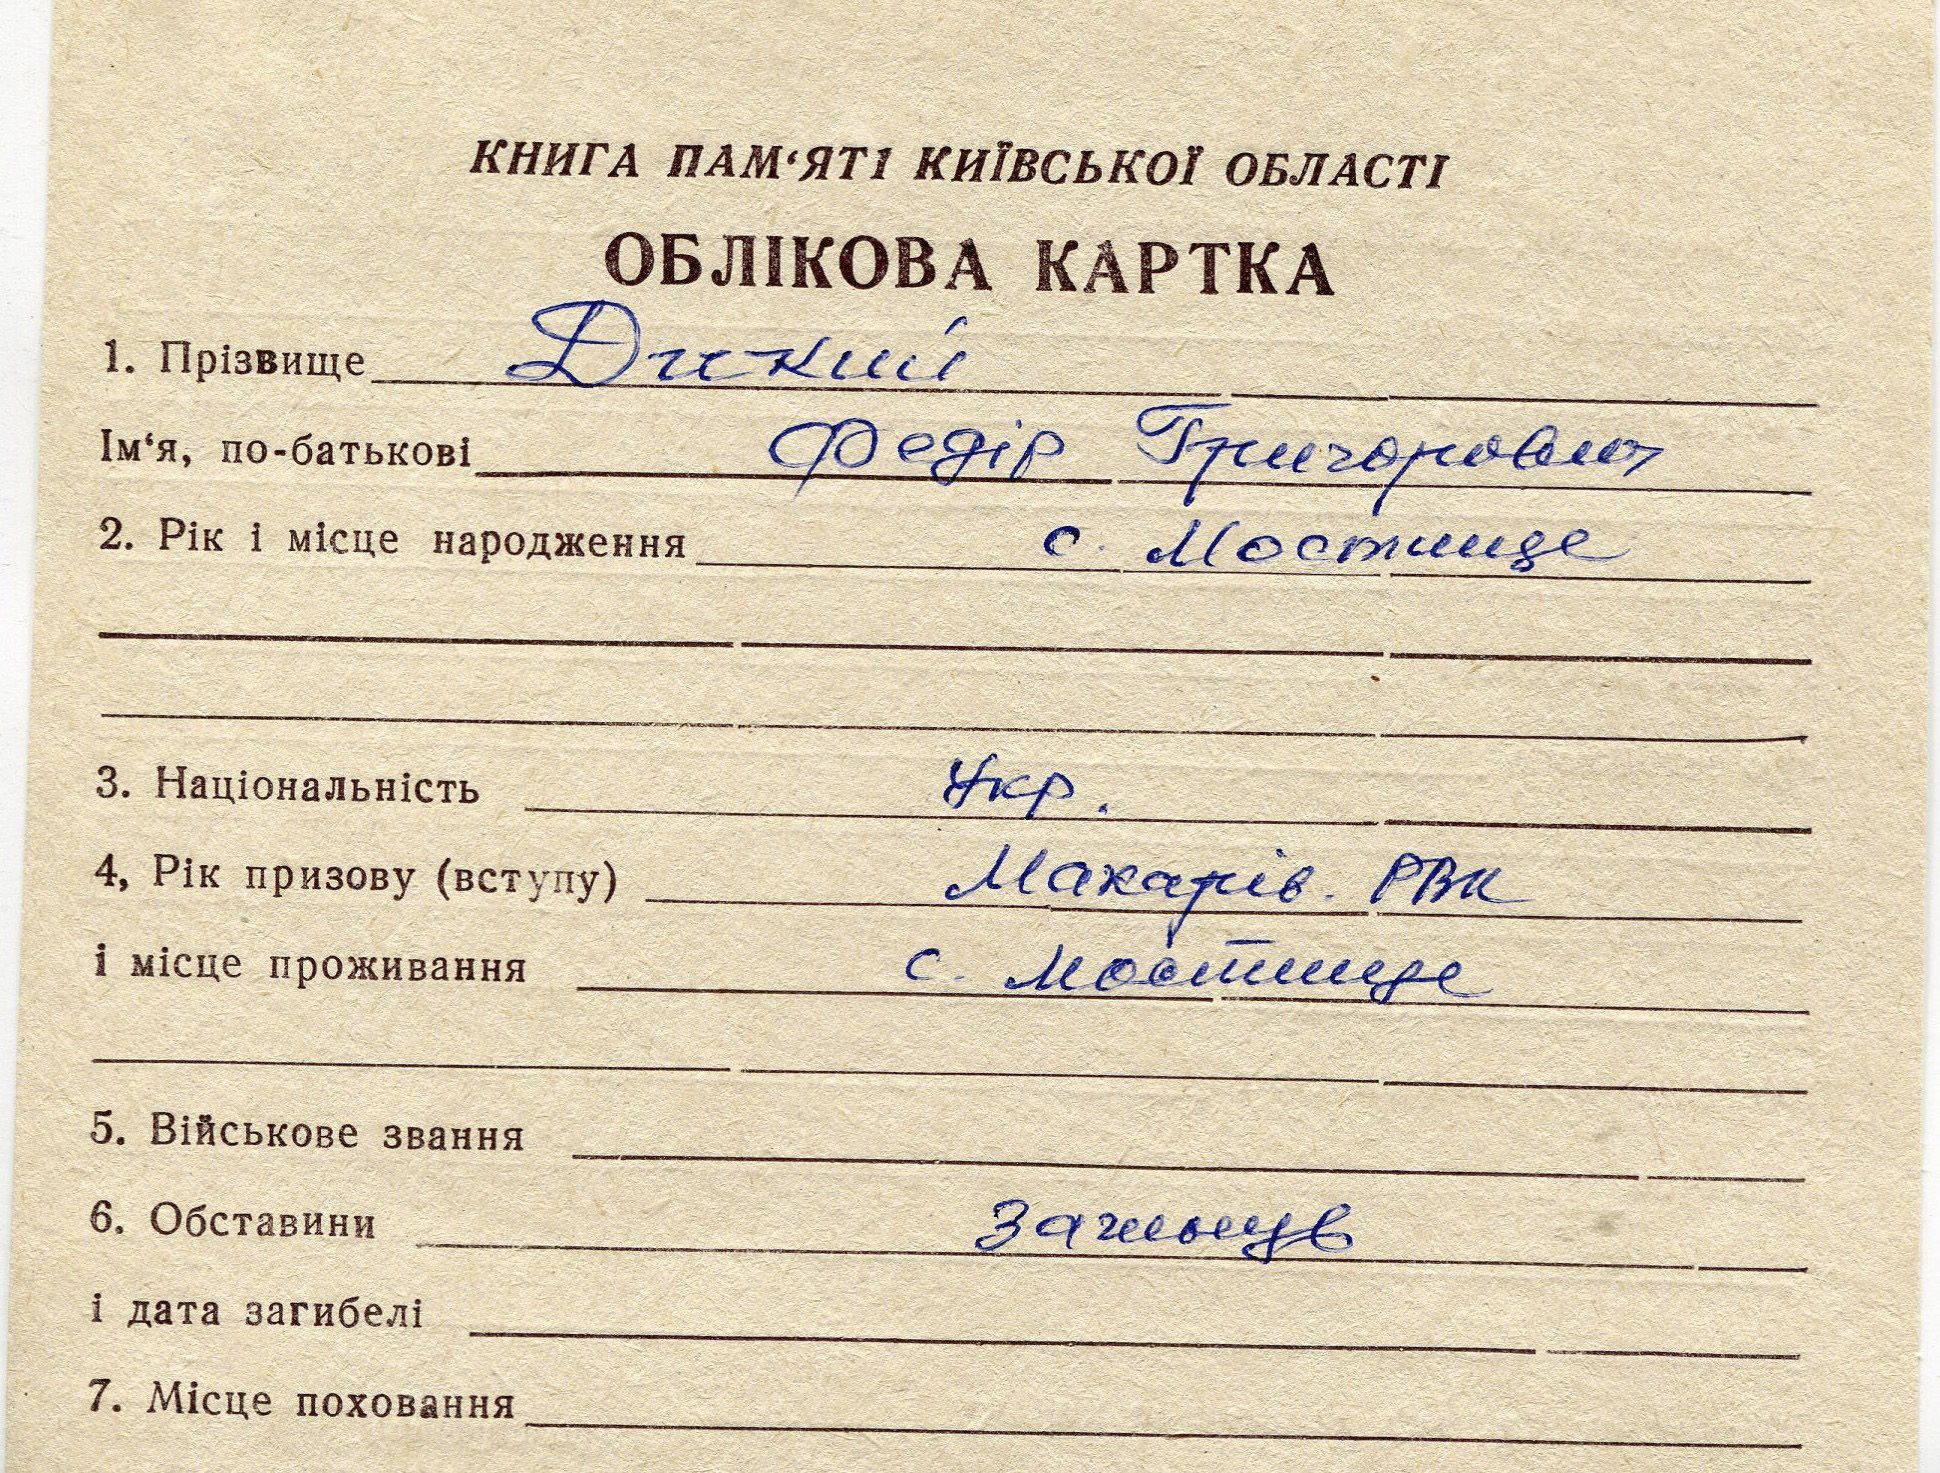 КНИГА ПАМ‘ЯТІ КИЇВСЬКОЇ ОБЛАСТІ
ОБЛІКОВА КАРТКА
1. Прізвище Дикий
Ім‘я, по-батькові Федір Григорович
2. Рік і місце народження с. Мостище
3. Національність Укр.
4, Рік призову (вступу) Макарів. РВК
і місце проживання с. Мостище
5. Військове звання
6. Обставини
і дата загибелі
7. Місце поховання